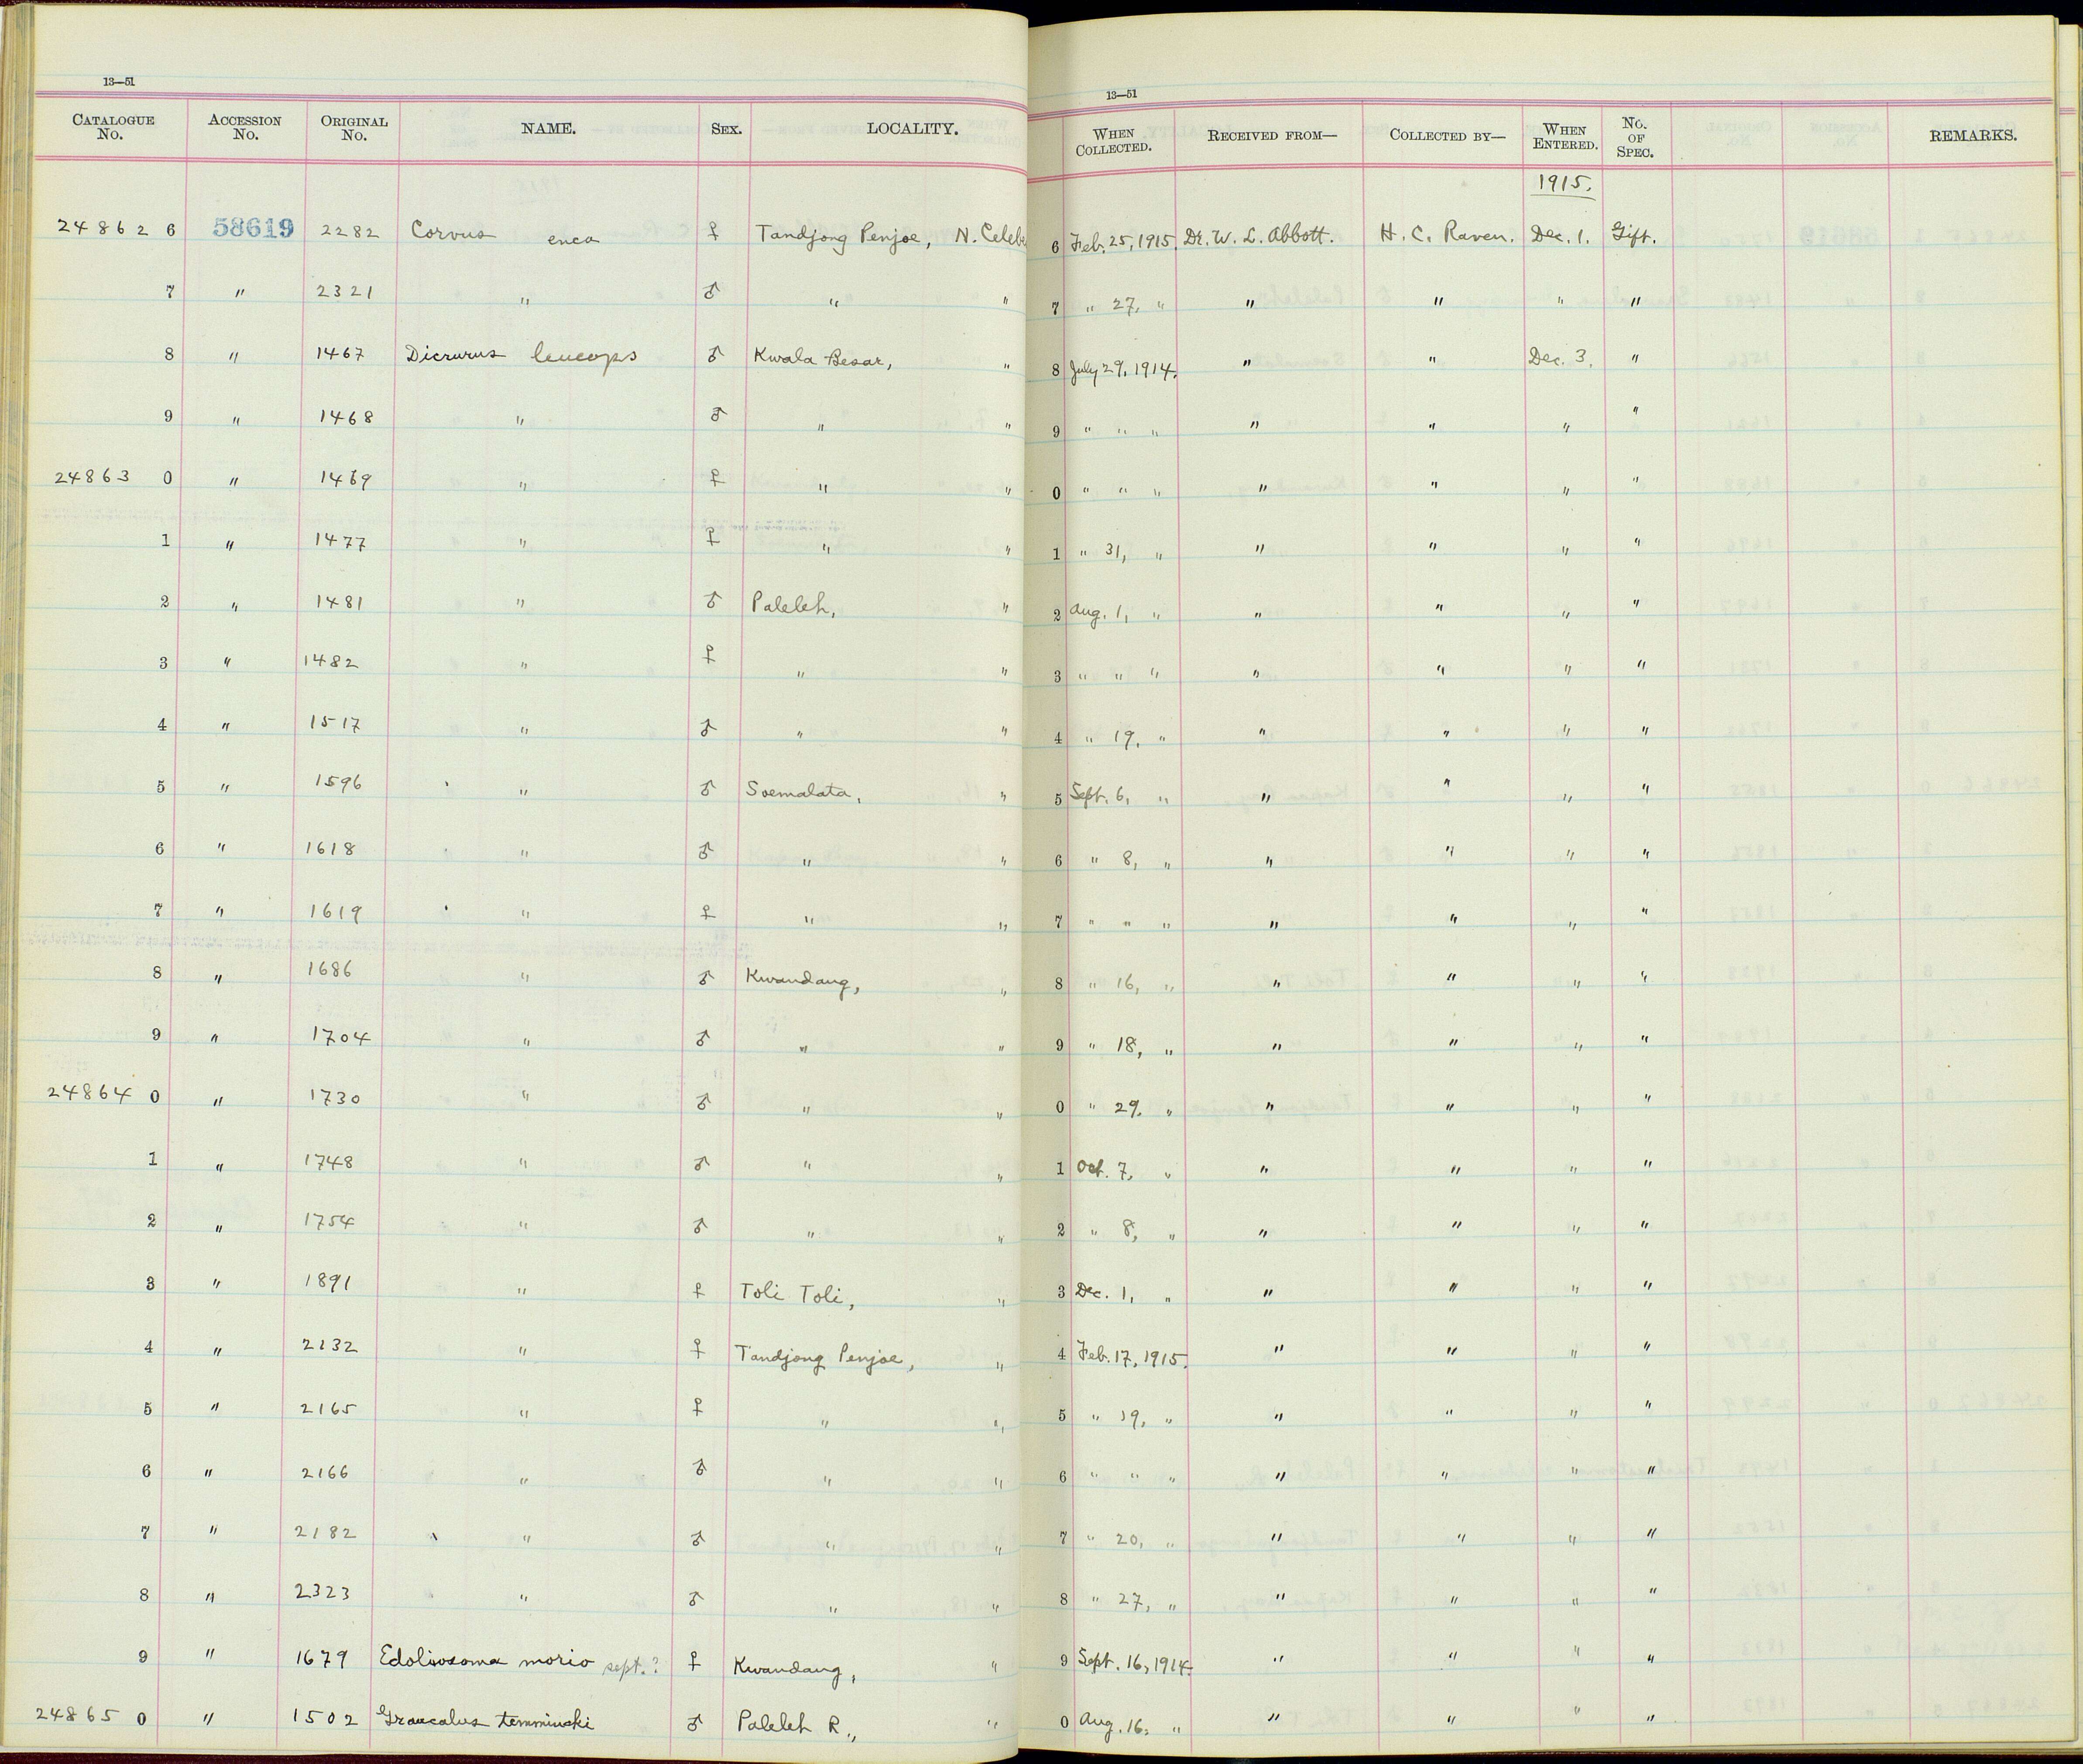 13—51
13—51
CATALOGUE No. ACCESSION No. ORIGINAL No. NAME. SEX. LOCALITY. WHEN COLLECTED. RECEIVED FROM— COLLECTED BY— WHEN ENTERED. No. OF SPEC. REMARKS.
1915.
24862 6 58619 2282 Corvus enca ♀ Tandjong Penjoe, N. Celebe 6 Feb. 25, 1915. Dr. W. L. Abbott. H. C. Raven. Dec. 1. Gift.
7 " 2321 " ♂ " " 7 " 27, " " " " "
8 " 1467 Dicrurus leucops ♂ Kwala Besar, " 8 July 29, 1914. " " Dec. 3. "
9 " 1468 " ♂ " " 9 " " " " " " "
24863 0 " 1469 " ♀ " " 0 " " " " " " "
1 " 1477 " ♀ " " 1 " 31, " " " " "
2 " 1481 " ♂ Paleleh, " 2 Aug. 1, " " " " "
3 " 1482 " ♀ " " 3 " " " " " " "
4 " 1517 " ♂ " " 4 " 19, " " " " "
5 " 1596 " ♂ Soemalata, " 5 Sept. 6, " " " " "
6 " 1618 " ♂ " " 6 " 8, " " " " "
7 " 1619 " ♀ " " 7 " " " " " " "
8 " 1686 " ♂ Kwandang, " 8 " 16, " " " " "
9 " 1704 " ♂ " " 9 " 18, " " " " "
24864 0 " 1730 " ♂ " " 0 " 29, " " " " "
1 " 1748 " ♂ " " 1 Oct. 7, " " " " "
2 " 1754 " ♂ " " 2 " 8, " " " " "
3 " 1891 " ♀ Toli Toli, " 3 Dec. 1, " " " " "
4 " 2132 " ♀ Tandjong Penjoe, " 4 Feb. 17, 1915. " " " "
5 " 2165 " ♀ " " 5 " 19, " " " " "
6 " 2166 " ♂ " " 6 " " " " " " "
7 " 2182 " ♂ " " 7 " 20, " " " " "
8 " 2323 " ♂ " " 8 " 27, " " " " "
9 " 1679 Edoliosoma morio sept.? ♀ Kwandang, " 9 Sept. 16, 1914. " " " "
24865 0 " 1502 Graucalus temmincki ♂ Paleleh R., " 0 Aug. 16, " " " " "